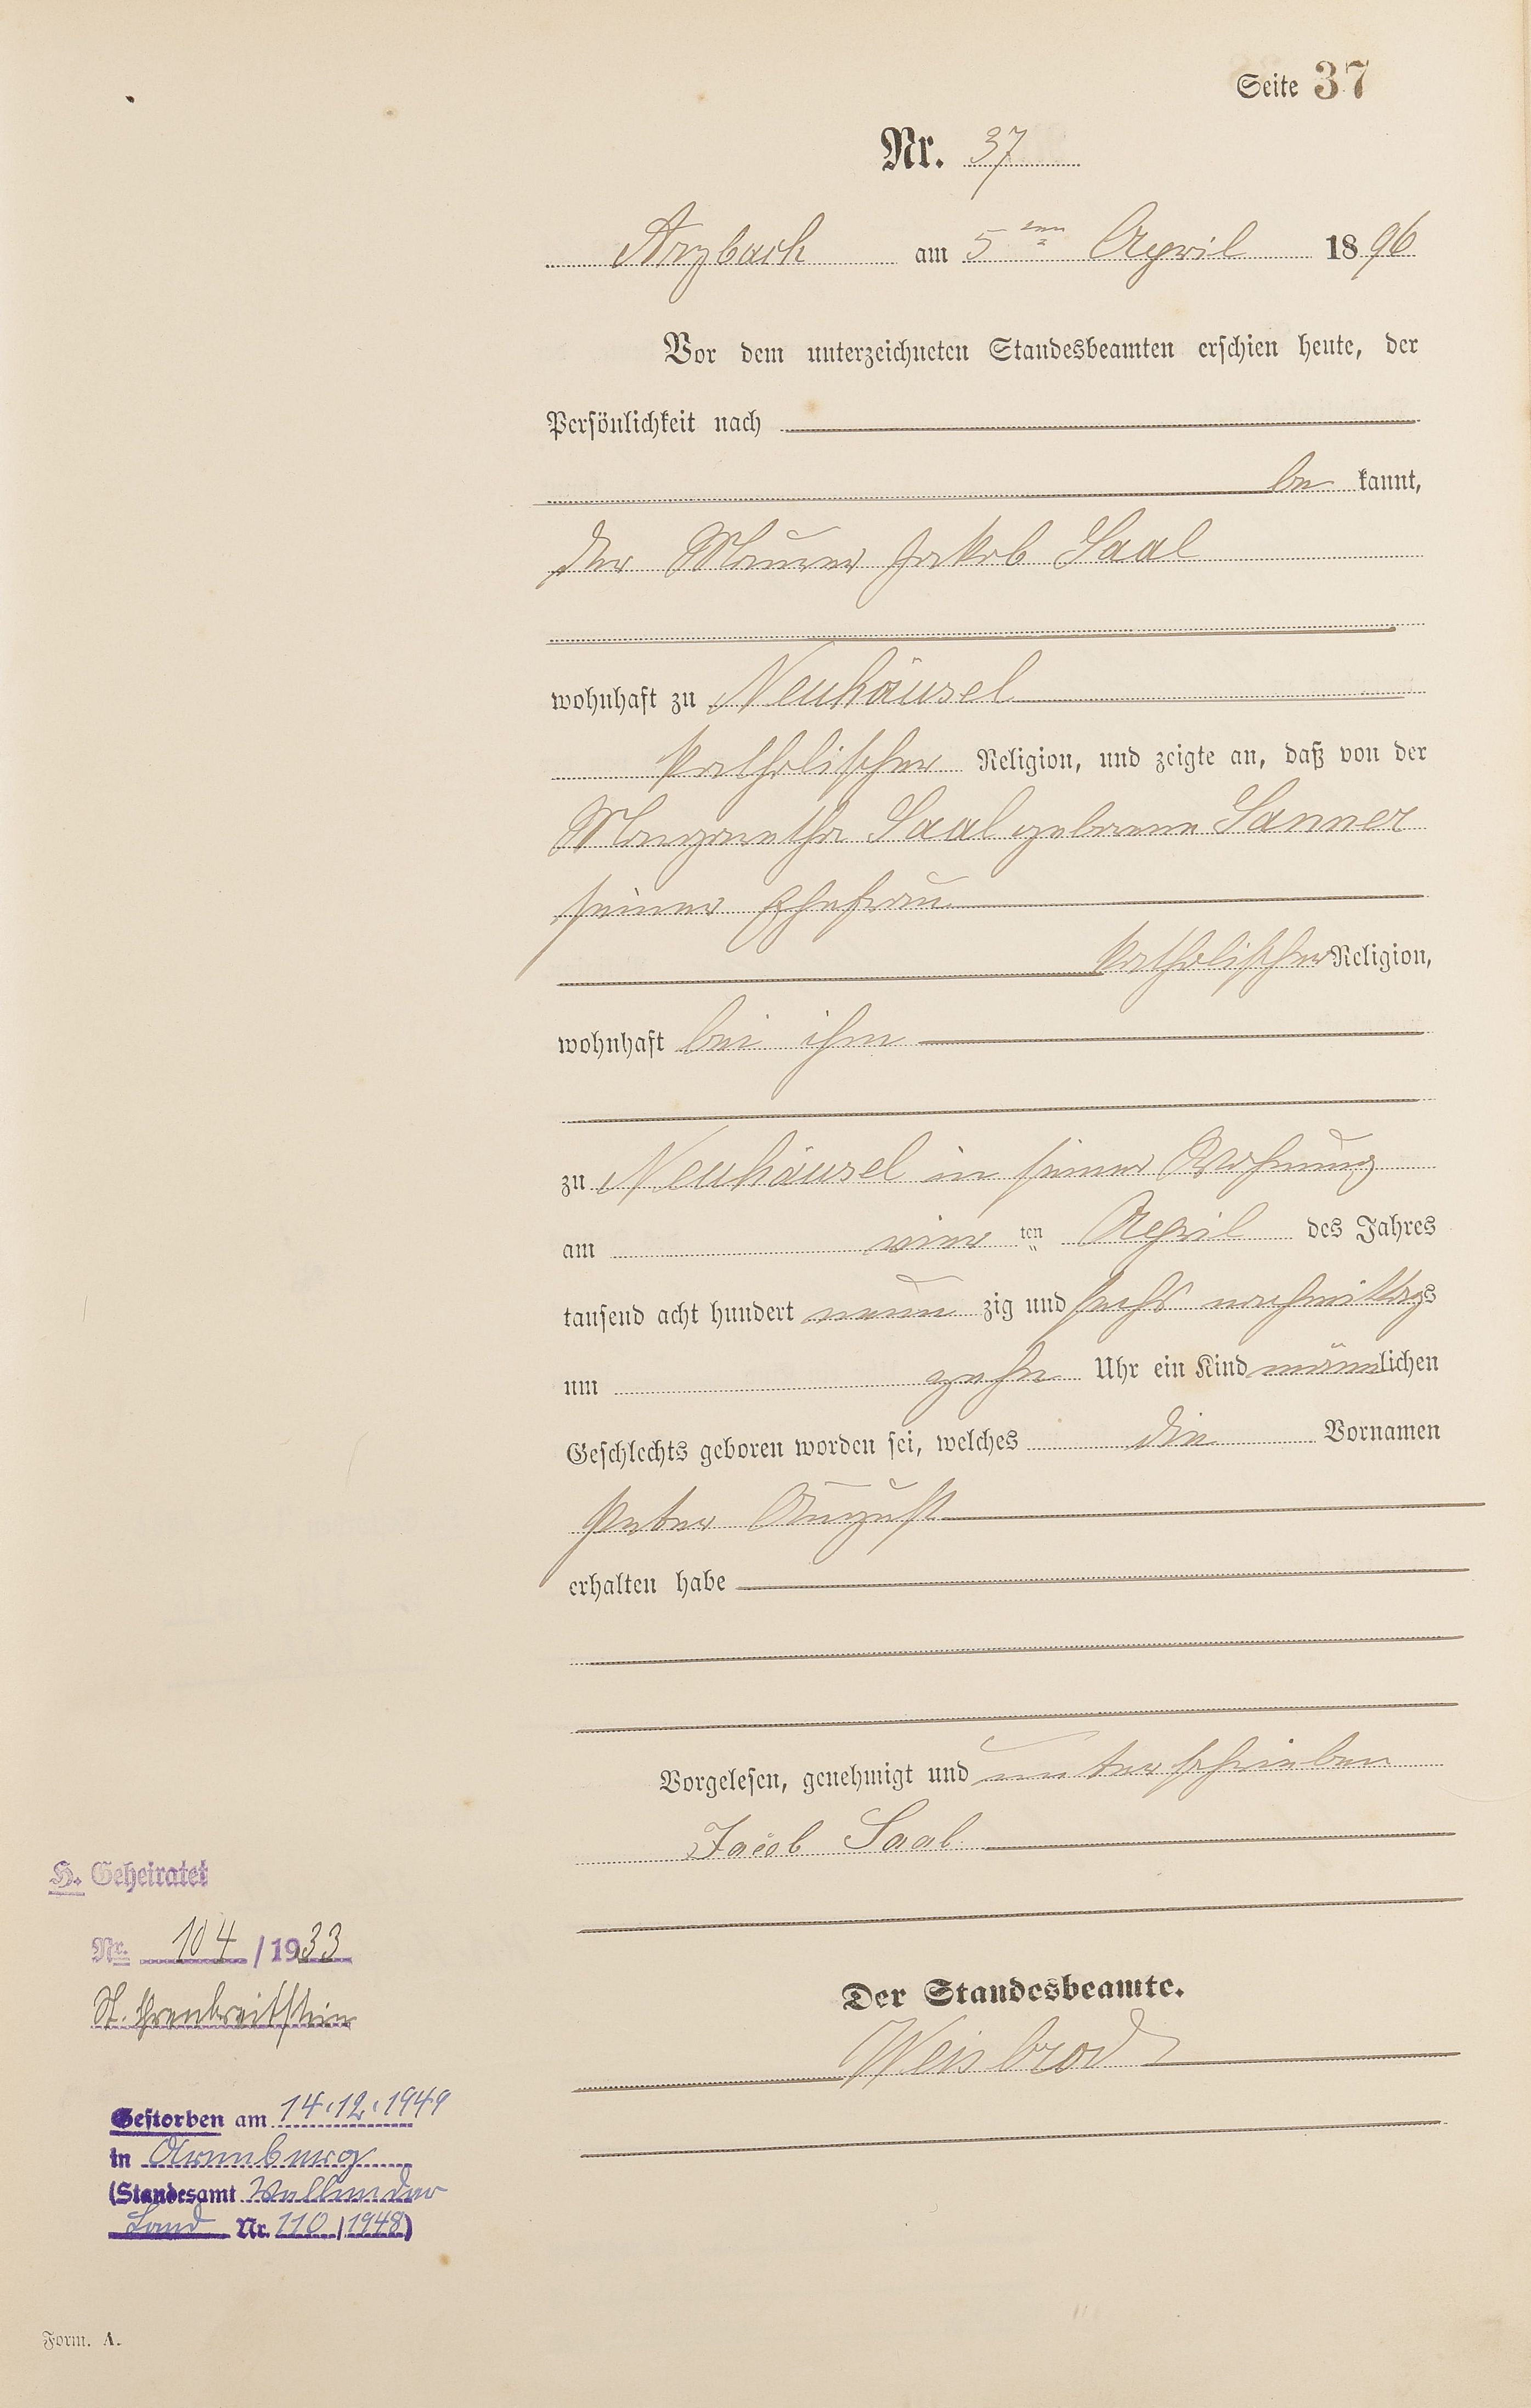 Seite 37
Nr. 37
Arzbach am 5ten April 1896
Vor dem unterzeichneten Standesbeamten erschien heute, der
Persönlichkeit nach
be kannt,
der Maurer Jakob Saal
wohnhaft zu Neuhäusel
katholischer Religion, und zeigte an, daß von der
Margaretha Saal geborene Sanner
seiner Ehefrau
katholischer Religion,
wohnhaft bei ihm
zu Neuhäusel in seiner Wohnung
am vier ten April des Jahres
tausend acht hundert neun zig und sechs nachmittags
um zehn Uhr ein Kind männlichen
Geschlechts geboren worden sei, welches die Vornamen
Peter August
erhalten habe
Vorgelesen, genehmigt und unterschrieben
Jacob Saal
Der Standesbeamte.
Weisbrod
H. Geheiratet
Nr. 104 / 1933
St. Ehrenbreitstein
Gestorben am 14.12.1949
in
(Standesamt Vallendar
Land Nr. 110 / 1948)
Form. A.